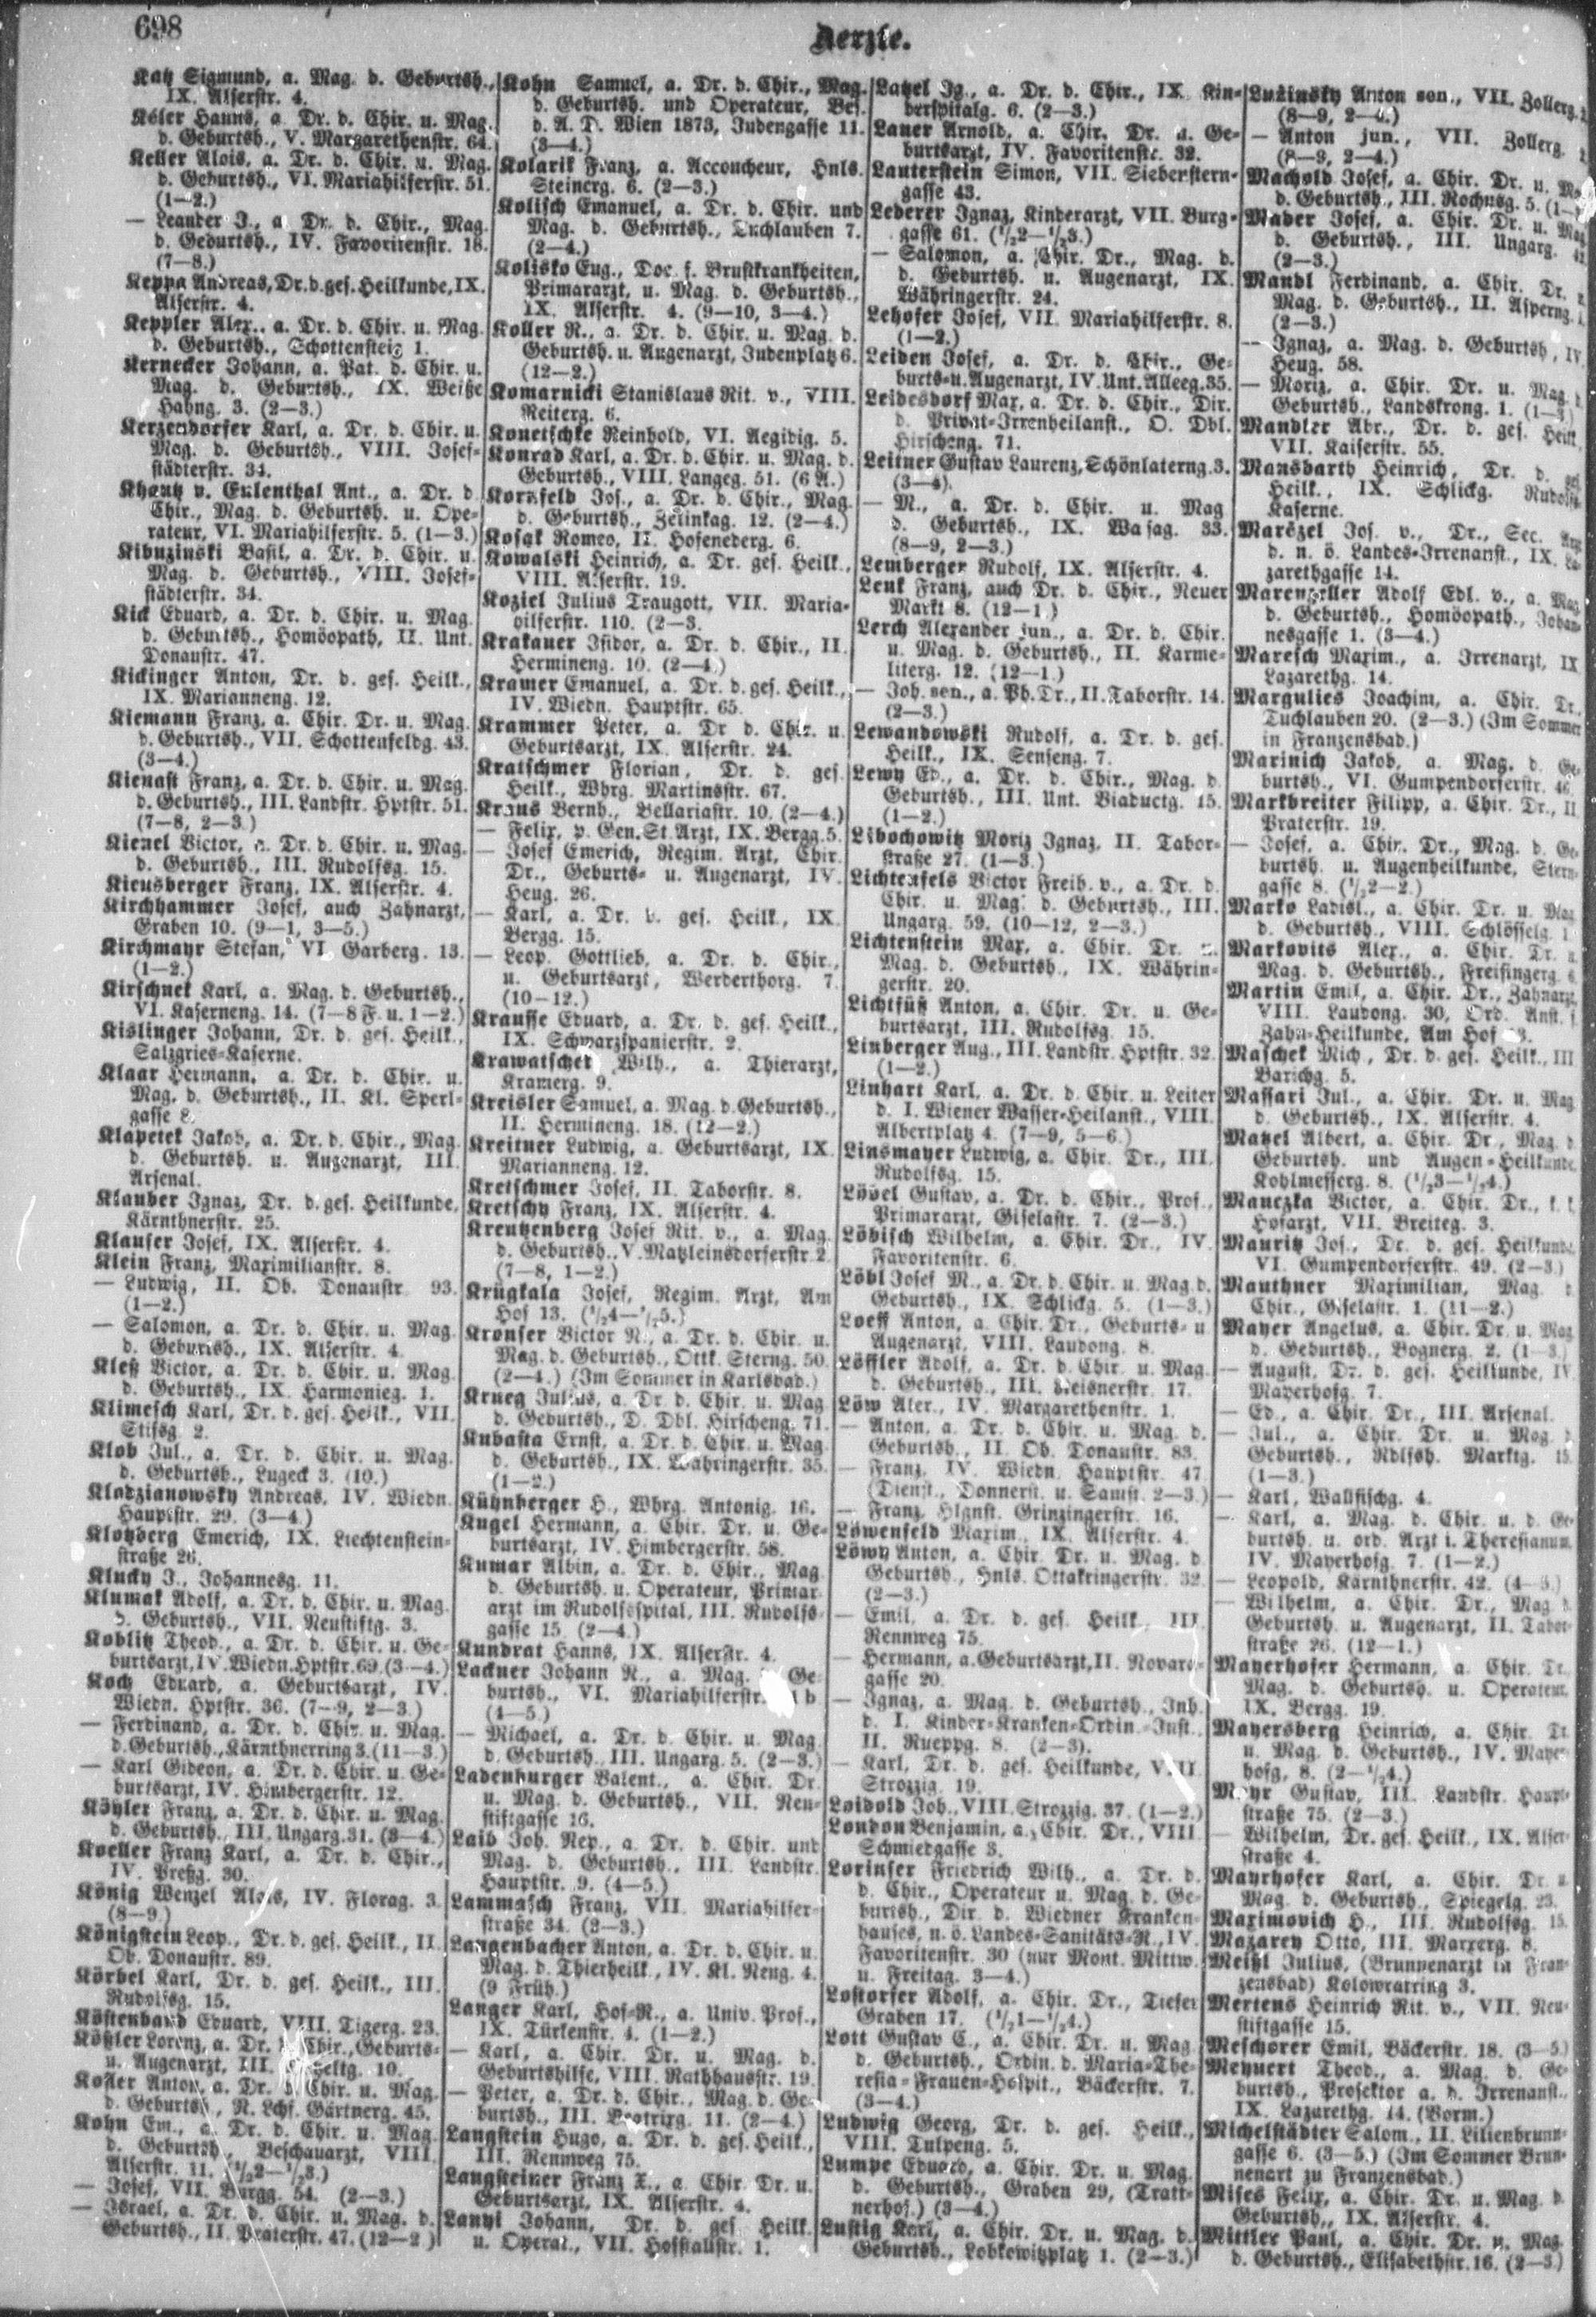 698
Aerzte.
Katz Sigmund, a. Mag. d. Geburtsh.,
IX. Alserstr. 4.
Kéler Hanns, a. Dr. d. Chir. u. Mag.
d. Geburtsh., V. Margarethenstr. 64.
Keller Alois, a. Dr. d. Chir. u. Mag.
d. Geburtsh., VI. Mariahilferstr. 51.
(1—2.)
— Leander J., a Dr. d. Chir., Mag.
d. Geburtsh., IV. Favoritenstr. 18.
(7—8.)
Keppa Andreas, Dr. d. ges. Heilkunde, IX.
Alserstr. 4.
Keppler Alex., a. Dr. d. Chir. u. Mag.
d. Geburtsh., Schottensteig 1.
Kernecker Johann, a. Pat. d. Chir. u.
Mag. d. Geburtsh., IX. Weiße
Hahng. 3. (2—3.)
Kerzendorfer Karl, a. Dr. d. Chir. u.
Mag. d. Geburtsh., VIII. Josef-
städterstr. 34.
Khautz v. Eulenthal Ant., a. Dr. d.
Chir., Mag. d. Geburtsh. u. Ope-
rateur, VI. Mariahilferstr. 5. (1—3.)
Kibuzinski Basil, a. Dr. d. Chir. u.
Mag. d. Geburtsh., VIII. Josef-
städterstr. 34.
Kick Eduard, a. Dr. d. Chir. u. Mag.
d. Geburtsh., Homöopath, II. Unt.
Donaustr. 47.
Kickinger Anton, Dr. d. ges. Heilk.,
IX. Marianneng. 12.
Kiemann Franz, a. Chir. Dr. u. Mag.
d. Geburtsh., VII. Schottenfeldg. 43.
(3—4.)
Kienast Franz, a. Dr. d. Chir. u. Mag.
d. Geburtsh., III. Landstr. Hptstr. 51.
(7—8, 2—3.)
Kienel Victor, a. Dr. d. Chir. u. Mag.
d. Geburtsh., III. Rudolfsg. 15.
Kiensberger Franz, IX. Alserstr. 4.
Kirchhammer Josef, auch Zahnarzt,
Graben 10. (9—1, 3—5.)
Kirchmayr Stefan, VI. Garberg. 13.
(1—2.)
Kirschnek Karl, a. Mag. d. Geburtsh.,
VI. Kaserneng. 14. (7—8 F. u. 1—2.)
Kislinger Johann, Dr. d. ges. Heilk.,
Salzgries-Kaserne.
Klaar Hermann, a. Dr. d. Chir. u.
Mag. d. Geburtsh., II. Kl. Sperl-
gasse 8.
Klapetek Jakob, a. Dr. d. Chir., Mag.
d. Geburtsh. u. Augenarzt, III.
Arsenal.
Klauber Ignaz, Dr. d. ges. Heilkunde,
Kärnthnerstr. 25.
Klauser Josef, IX. Alserstr. 4.
Klein Franz, Maximilianstr. 8.
— Ludwig, II. Ob. Donaustr. 93.
(1—2.)
— Salomon, a. Dr. d. Chir. u. Mag.
d. Geburtsh., IX. Alserstr. 4.
Kleß Victor, a. Dr. d. Chir. u. Mag.
d. Geburtsh., IX. Harmonieg. 1.
Klimesch Karl, Dr. d. ges. Heilk., VII.
Stiftg. 2.
Klob Jul., a. Dr. d. Chir. u. Mag.
d. Geburtsh., Lugeck 3. (10.)
Klodzianowsky Andreas, IV. Wiedn.
Hauptstr. 29. (3—4.)
Klotzberg Emerich, IX. Liechtenstein-
straße 26.
Klucky J., Johannesg. 11.
Klumak Adolf, a. Dr. d. Chir. u. Mag.
d. Geburtsh., VII. Neustiftg. 3.
Koblitz Theod., a. Dr. d. Chir. u. Ge-
burtsarzt, IV. Wiedn. Hptstr. 69. (3—4.)
Koch Eduard, a. Geburtsarzt, IV.
Wiedn. Hptstr. 36. (7—9, 2—3.)
— Ferdinand, a. Dr. d. Chir. u. Mag.
d. Geburtsh., Kärnthnerring 3. (11—3.)
— Karl Gideon, a. Dr. d. Chir. u. Ge-
burtsarzt, IV. Himbergerstr. 12.
Köhler Franz, a. Dr. d. Chir. u. Mag.
d. Geburtsh., III. Ungarg. 31. (3—4.)
Koeller Franz Karl, a. Dr. d. Chir.,
IV. Preßg. 30.
König Wenzel Alois, IV. Florag. 3.
(8—9.)
Königstein Leop., Dr. d. ges. Heilk., II.
Ob. Donaustr. 89.
Körbel Karl, Dr. d. ges. Heilk., III.
Rudolfsg. 15.
Köstenbaud Eduard, VIII. Tigerg. 23.
Kößler Lorenz, a. Dr. d. Chir., Geburts-
u. Augenarzt, III. 10.
Kofler Anton, a. Dr. d. Chir. u. Mag.
d. Geburtsh., N. Lchf. Gärtnerg. 45.
Kohn Em., a. Dr. d. Chir. u. Mag.
d. Geburtsh., Beschauarzt, VIII.
Alserstr. 11. (1/2 2—1/2 3.)
— Josef, VII. Burgg. 54. (2—3.)
— Israel, a. Dr. d. Chir. u. Mag. d.
Geburtsh., II. Praterstr. 47. (12—2.)
Kohn Samuel, a. Dr. d. Chir., Mag.
d. Geburtsh. und Operateur, Bes.
d. A. D. Wien 1873, Judengasse 11.
(3—4.)
Kolarik Franz, a. Accoucheur, Hnls.
Steinerg. 6. (2—3.)
Kolisch Emanuel, a. Dr. d. Chir. und
Mag. d. Geburtsh., Tuchlauben 7.
(2—4.)
Kolisko Eug., Doc. f. Brustkrankheiten,
Primararzt, u. Mag. d. Geburtsh.,
IX. Alserstr. 4. (9—10, 3—4.)
Koller R., a. Dr. d. Chir. u. Mag. d.
Geburtsh. u. Augenarzt, Judenplatz 6.
(12—2.)
Komarnicki Stanislaus Rit. v., VIII.
Reiterg. 6.
Konetschke Reinhold, VI. Aegidig. 5.
Konrad Karl, a. Dr. d. Chir. u. Mag. d.
Geburtsh., VIII. Langeg. 51. (6 A.)
Kornfeld Jos., a. Dr. d. Chir., Mag.
d. Geburtsh., Zelinkag. 12. (2—4.)
Kosak Romeo, II. Hofenederg. 6.
Kowalski Heinrich, a. Dr. ges. Heilk.,
VIII. Alserstr. 19.
Koziel Julius Traugott, VII. Maria-
hilferstr. 110. (2—3.
Krakauer Isidor, a. Dr. d. Chir., II.
Hermineng. 10. (2—4.)
Kramer Emanuel, a. Dr. d. ges. Heilk.,
IV. Wiedn. Hauptstr. 65.
Krammer Peter, a. Dr d Chir. u.
Geburtsarzt, IX. Alserstr. 24.
Kratschmer Florian, Dr. d. ges.
Heilk., Whrg. Martinsstr. 67.
Kraus Bernh., Bellariastr. 10. (2—4.)
— Felix, p. Gen. St. Arzt, IX. Bergg. 5.
— Josef Emerich, Regim. Arzt, Chir.
Dr., Geburts- u. Augenarzt, IV.
Heug. 26.
— Karl, a. Dr. d. ges. Heilk., IX.
Bergg. 15.
— Leop. Gottlieb, a. Dr. d. Chir.,
u. Geburtsarzt, Werderthorg. 7.
(10—12.)
Krausse Eduard, a. Dr. d. ges. Heilk.,
IX. Schwarzspanierstr. 2.
Krawatschek Wilh., a. Thierarzt,
Kramerg. 9.
Kreisler Samuel, a. Mag. d. Geburtsh.,
II. Hermineng. 18. (12—2.)
Kreitner Ludwig, a. Geburtsarzt, IX.
Marianneng. 12.
Kretschmer Josef, II. Taborstr. 8.
Kretschy Franz, IX. Alserstr. 4.
Kreutzenberg Josef Rit. v., a. Mag.
d. Geburtsh., V. Matzleinsdorferstr. 2.
(7—8, 1—2.)
Krügkala Josef, Regim. Arzt, Am
Hof 13. (1/2 4—1/2 5.)
Kronser Victor N., a. Dr. d. Chir. u.
Mag. d. Geburtsh., Ottk. Sterng. 50.
(2—4.) (Im Sommer in Karlsbad.)
Krueg Julius, a. Dr. d. Chir. u. Mag.
d. Geburtsh., O. Dbl. Hirscheng. 71.
Kubasta Ernst, a. Dr. d. Chir. u. Mag.
d. Geburtsh., IX. Währingerstr. 35.
(1—2.)
Kühnberger H., Whrg. Antonig. 16.
Kugel Hermann, a. Chir. Dr. u. Ge-
burtsarzt, IV. Himbergerstr. 58.
Kumar Albin, a. Dr. d. Chir., Mag.
d. Geburtsh. u. Operateur, Primar-
arzt im Rudolfsspital, III. Rudolfs-
gasse 15. (2—4.)
Kundrat Hanns, IX. Alserstr. 4.
Lackner Johann N., a. Mag. Ge-
burtsh., VI. Mariahilferstr. 1 b.
(4—5.)
— Michael, a. Dr. d. Chir. u. Mag.
d. Geburtsh., III. Ungarg. 5. (2—3.)
Ladenburger Valent., a. Chir. Dr.
u. Mag. d. Geburtsh., VII. Neu-
stiftgasse 16.
Laib Joh. Nep., a. Dr. d. Chir. und
Mag. d. Geburtsh., III. Landstr.
Hauptstr. 9. (4—5.)
Lammasch Franz, VII. Mariahilfer-
straße 34. (2—3.)
Langenbacher Anton, a. Dr. d. Chir. u.
Mag. d. Thierheilk., IV. Kl. Neng. 4.
(9 Früh.)
Langer Karl, Hof-R., a. Univ. Prof.,
IX. Türkenstr. 4. (1—2.)
— Karl, a. Chir. Dr. u. Mag. d.
Geburtshilfe, VIII. Rathhausstr. 19.
— Peter, a. Dr. d. Chir., Mag. d. Ge-
burtsh., III. Beatrixg. 11. (2—4.)
Langstein Hugo, a. Dr. d. ges. Heilk.,
III. Rennweg 75.
Langsteiner Franz X., a. Chir. Dr. u.
Geburtsarzt, IX. Alserstr. 4.
Lanyi Johann, Dr. d. ges. Heilk.
u. Operat., VII. Hofstallstr. 1.
Latzel Ig., a. Dr. d. Chir., IX. Kin-
derspitalg. 6. (2—3.)
Lauer Arnold, a. Chir. Dr. u. Ge-
burtsarzt, IV. Favoritenstr. 32.
Lauterstein Simon, VII. Siebenstern-
gasse 43.
Lederer Ignaz, Kinderarzt, VII. Burg-
gasse 61. (1/2 2—1/2 3.)
— Salomon, a. Chir. Dr., Mag. d.
d. Geburtsh. u. Augenarzt, IX.
Währingerstr. 24.
Lehofer Josef, VII. Mariahilferstr. 8.
(1—2.)
Leiden Josef, a. Dr. d. Chir., Ge-
burts- u. Augenarzt, IV. Unt. Alleeg. 35.
Leidesdorf Max, a. Dr. d. Chir., Dir.
d. Privat-Irrenheilanst., O. Dbl.
Hirscheng. 71.
Leitner Gustav Laurenz, Schönlaterng. 3.
(3—4).
— M., a. Dr. d. Chir. u. Mag
d. Geburtsh., IX. Wasag. 33.
(8—9, 2—3.)
Lemberger Rudolf, IX. Alserstr. 4.
Lenk Franz, auch Dr. d. Chir., Neuer
Markt 8. (12—1.)
Lerch Alexander jun., a. Dr. d. Chir.
u. Mag. d. Geburtsh., II. Karme-
literg. 12. (12—1.)
— Joh. sen., a. Ph. Dr., II. Taborstr. 14.
(2—3.)
Lewandowski Rudolf, a. Dr. d. ges.
Heilk., IX. Senseng. 7.
Lewy Ed., a. Dr. d. Chir., Mag. d.
Geburtsh., III. Unt. Viaductg. 15.
(1—2.)
Libochowitz Moriz Ignaz, II. Tabor-
straße 27. (1—3.)
Lichtenfels Victor Freih. v., a. Dr. d.
Chir. u. Mag. d. Geburtsh., III.
Ungarg. 59. (10—12, 2—3.)
Lichtenstein Max, a. Chir. Dr. u.
Mag. d. Geburtsh., IX. Währin-
gerstr. 20.
Lichtfüß Anton, a. Chir. Dr. u. Ge-
burtsarzt, III. Rudolfsg. 15.
Linberger Aug., III. Landstr. Hptstr. 32.
(1—2.)
Linhart Karl, a. Dr. d. Chir. u. Leiter
d. I. Wiener Wasser-Heilanst., VIII.
Albertplatz 4. (7—9, 5—6.)
Linsmayer Ludwig, a. Chir. Dr., III.
Rudolfsg. 15.
Löbel Gustav, a. Dr. d. Chir., Prof.,
Primararzt, Giselastr. 7. (2—3.)
Löbisch Wilhelm, a. Chir. Dr., IV.
Favoritenstr. 6.
Löbl Josef M., a. Dr. d. Chir. u. Mag. d.
Geburtsh., IX. Schlickg. 5. (1—3.)
Loeff Anton, a. Chir. Dr., Geburts- u.
Augenarzt, VIII. Laudong. 8.
Löffler Adolf, a. Dr. d. Chir. u. Mag.
d. Geburtsh., III. Reisnerstr. 17.
Löw Alex., IV. Margarethenstr. 1.
— Anton, a. Dr. d. Chir. u. Mag. d.
Geburtsh., II. Ob. Donaustr. 83.
— Franz, IV. Wiedn. Hauptstr. 47
(Dienst., Donnerst. u. Samst. 2—3.)
— Franz, Hlgnst. Grinzingerstr. 16.
Löwenfeld Maxim., IX. Alserstr. 4.
Löwy Anton, a. Chir. Dr. u. Mag. d.
Geburtsh., Hnls. Ottakringerstr. 32.
(2—3.)
— Emil, a. Dr. d. ges. Heilk., III.
Rennweg 75.
— Hermann, a. Geburtsarzt, II. Novara-
gasse 20.
— Ignaz, a. Mag. d. Geburtsh., Inh.
d. I. Kinder-Kranken-Ordin.-Inst.,
II. Rueppg. 8. (2—3).
— Karl, Dr. d. ges. Heilkunde, VIII.
Strozzig. 19.
Loidold Joh., VIII. Strozzig. 37. (1—2.)
London Benjamin, a. Chir. Dr., VIII.
Schmiedgasse 3.
Lorinser Friedrich Wilh., a. Dr. d.
d. Chir., Operateur u. Mag. d. Ge-
burtsh., Dir. d. Wiedner Kranken-
hauses, n. ö. Landes-Sanitäts-R., IV.
Favoritenstr. 30 (nur Mont. Mittw.
u. Freitag. 3—4.)
Lostorfer Adolf, a. Chir. Dr., Tiefer
Graben 17. (1/2 1—1/2 4.)
Lott Gustav C., a. Chir. Dr. u. Mag.
d. Geburtsh., Ordin. d. Maria-The-
resia-Frauen-Hospit., Bäckerstr. 7.
(3—4.)
Ludwig Georg, Dr. d. ges. Heilk.,
VIII. Tulpeng. 5.
Lumpe Eduard, a. Chir. Dr. u. Mag.
d. Geburtsh., Graben 29, (Tratt-
nerhof.) (3—4.)
Lustig Karl, a. Chir. Dr. u. Mag. d.
Geburtsh., Lobkowitzplatz 1. (2—3.)
Luzinsky Anton sen., VII. Zollerg.
(8—9, 2—4.)
— Anton jun., VII. Zollerg.
(8—9, 2—4.)
Machold Josef, a. Chir. Dr. u.
d. Geburtsh., III. Rochusg. 5.
Mader Josef, a. Chir. Dr. u. Mag
d. Geburtsh., III. Ungarg.
(2—3.)
Mandl Ferdinand, a. Chir. Dr.
Mag. d. Geburtsh., II. Asperng.
(2—3.)
— Ignaz, a. Mag. d. Geburtsh., IV
Heug. 58.
— Moriz, a. Chir. Dr. u. Mag. d.
Geburtsh., Landskrong. 1. (1—3.)
Mandler Abr., Dr. d. ges. Heilk.
VII. Kaiserstr. 55.
Mansbarth Heinrich, Dr. d. ges.
Heilk., IX. Schlickg. Rudolfs-
Kaserne.
Marëzel Jos. v., Dr., Sec.
d. n. ö. Landes-Irrenanst., IX. La-
zarethgasse 14.
Marenzeller Adolf Edl. v., a. Mag.
d. Geburtsh., Homöopath., Johan-
nesgasse 1. (3—4.)
Maresch Maxim., a. Irrenarzt, IX
Lazarethg. 14.
Margulies Joachim, a. Chir. Dr.,
Tuchlauben 20. (2—3.) (Im Sommer
in Franzensbad.)
Marinich Jakob, a. Mag. d. Ge-
burtsh., VI. Gumpendorferstr. 46.
Markbreiter Filipp, a. Chir. Dr., II.
Praterstr. 19.
— Josef, a. Chir. Dr., Mag. d. Ge-
burtsh. u. Augenheilkunde, Stern-
gasse 8. (1/2 2—2.)
Marko Ladisl., a. Chir. Dr. u. Mag.
d. Geburtsh., VIII. Schlösselg. 1.
Markovits Alex., a. Chir. Dr. u.
Mag. d. Geburtsh., Freisingerg. 6.
Martin Emil, a. Chir. Dr., Zahnarzt,
VIII. Laudong. 30, Ord. Anst. f.
Zahn-Heilkunde, Am Hof 3.
Maschek Mich., Dr. d. ges. Heilk., III.
Barichg. 5.
Massari Jul., a. Chir. Dr. u. Mag.
d. Geburtsh., IX. Alserstr. 4.
Matzel Albert, a. Chir. Dr., Mag. d.
Geburtsh. und Augen-Heilkunde,
Kohlmesserg. 8. (1/2 3—1/2 4.)
Mauczka Victor, a. Chir. Dr., k. k.
Hofarzt, VII. Breiteg. 3.
Mauritz Jos., Dr. d. ges. Heilkunde,
VI. Gumpendorferstr. 49. (2—3.)
Mauthner Maximilian, Mag. d.
Chir., Giselastr. 1. (11—2.)
Mayer Angelus, a. Chir. Dr. u. Mag.
d. Geburtsh., Bognerg. 2. (1—3.)
— August, Dr. d. ges. Heilkunde, IV.
Mayerhofg. 7.
— Ed., a. Chir. Dr., III. Arsenal.
— Jul., a. Chir. Dr. u. Mag. d.
Geburtsh., Rdlfsh. Marktg. 15.
(1—3.)
— Karl, Wallfischg. 4.
— Karl, a. Mag. d. Chir. u. d. Ge-
burtsh. u. ord. Arzt i. Theresianum,
IV. Mayerhofg. 7. (1—2.)
— Leopold, Kärnthnerstr. 42. (4—5.)
— Wilhelm, a. Chir. Dr., Mag. d.
Geburtsh. u. Augenarzt, II. Tabor-
straße 26. (12—1.)
Mayerhofer Hermann, a. Chir. Dr.
Mag. d. Geburtsh. u. Operateur,
IX. Bergg. 19.
Mayersberg Heinrich, a. Chir. Dr.
u. Mag. d. Geburtsh., IV. Mayer-
hofg. 8. (2—1/2 4.)
Mayr Gustav, III. Landstr. Haupt-
straße 75. (2—3.)
— Wilhelm, Dr. ges. Heilk., IX. Alser-
straße 4.
Mayrhofer Karl, a. Chir. Dr. u.
Mag. d. Geburtsh., Spiegelg. 23.
Maximovich H., III. Rudolfsg. 15.
Mazarey Otto, III. Marxerg. 8.
Meißl Julius, (Brunnenarzt in Fran-
zensbad) Kolowratring 3.
Mertens Heinrich Rit. v., VII. Neu-
stiftgasse 15.
Meschorer Emil, Bäckerstr. 18. (3—5.)
Meynert Theod., a. Mag. d. Ge-
burtsh., Prosektor a. d. Irrenanst.,
IX. Lazarethg. 14. (Vorm.)
Michelstädter Salom., II. Lilienbrunn-
gasse 6. (3—5.) (Im Sommer Brun-
nenart zu Franzensbad.)
Mises Felix, a. Chir. Dr. u. Mag. d.
Geburtsh., IX. Alserstr. 4.
Mittler Paul, a. Chir. Dr. u. Mag.
d. Geburtsh., Elisabethstr. 16. (2—3.)